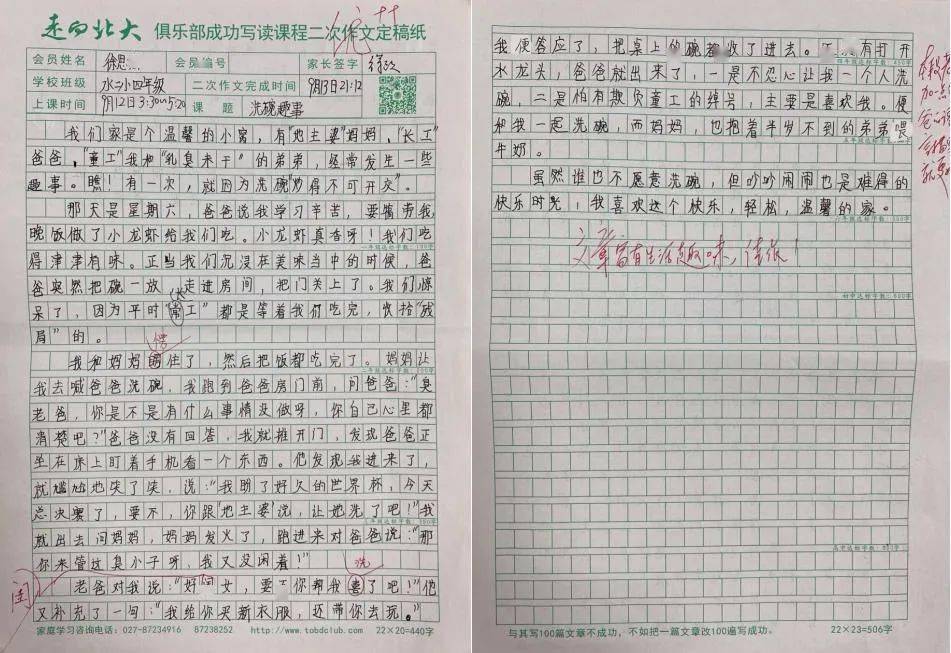 走向北大 俱乐部成功写读课程二次作文定稿纸
会员姓名 徐思 会员编号 家长签字
学校班级 水二小四年级 二次作文完成时间 9月13日21:12
上课时间 9月12日3:30~5:20 课题 洗碗趣事
我们家是个温馨的小窝，有“地主婆”妈妈，“长工”
爸爸，“童工”我和“乳臭未干”的弟弟，经常发生一些
趣事。瞧！有一次，就因为洗碗“吵得不可开交”。
那天是星期六，爸爸说我学习辛苦，要犒劳我，
晚饭做了小龙虾给我们吃。小龙虾真香呀！我们吃
得津津有味。正当我们沉浸在美味当中的时候，爸
爸突然把碗一放，走进房间，把门关上了。我们惊
长
呆了，因为平时“常工”都是等着我们吃完，收拾“残
局”的。
愣
我和妈妈住了，然后把饭都吃完了。妈妈让
我去喊爸爸洗碗，我跑到爸爸房门前，问爸爸：“臭
老爸，你是不是有什么事情没做呀，你自己心里都
清楚吧？”爸爸没有回答，我就推开门，发现爸爸正
坐在床上盯着手机看一个东西。他发现我进来了，
就尴尬地笑了笑，说：“我盼了好久的世界杯，今天
总决赛了，要不，你跟‘地主婆’说，让她洗了吧！”我
就出去问妈妈，妈妈发火了，跑进来对爸爸说：“那
你来管这臭小子呀，我又没闲着！”
洗
老爸对我说：“好闺女，要你帮我喜了吧！”他
又补充了一句：“我给你买新衣服，还带你去玩。”
闺
家庭学习咨询电话：027-87234916 87238252 http://www.tobdclub.com 22×20=440字
我便答应了，把桌上的碗都收了进去。有打开
水龙头，爸爸就出来了，一是不忍心让我一个人洗
碗，二是怕有欺负童工的绰号，主要是喜欢我。便
和我一起洗碗，而妈妈，也抱着半岁不到的弟弟喂
牛奶。
虽然谁也不愿意洗碗，但吵吵闹闹也是难得的
快乐时光，我喜欢这个快乐，轻松，温馨的家。
文章富有生活趣味，读来
与其写100篇文章不成功，不如把一篇文章改100遍写成功。 22×23=506字